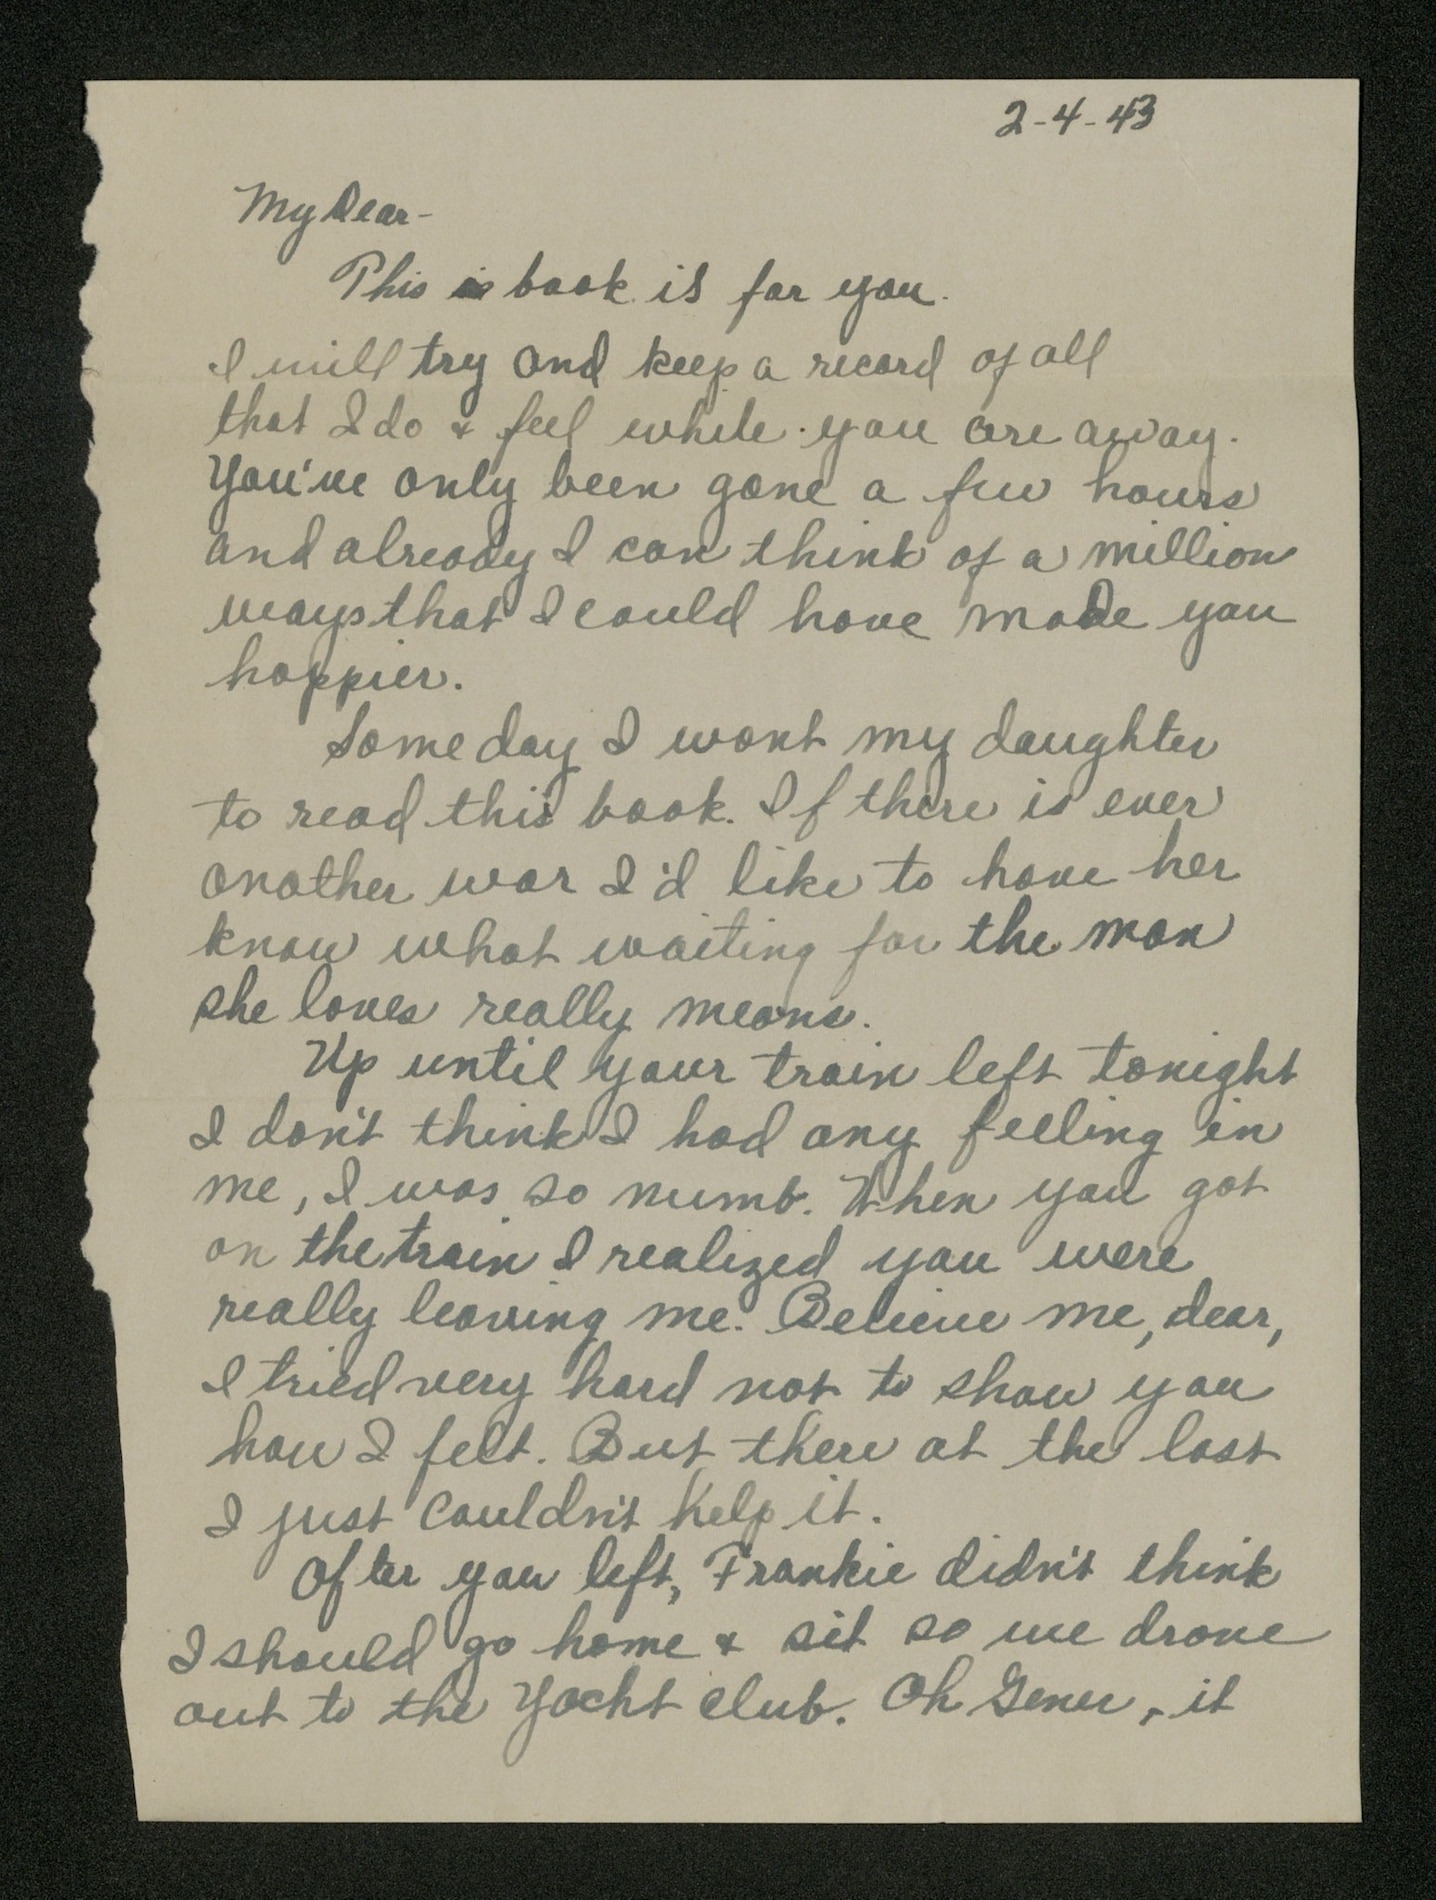 2-4-43
My Dear-
This is book is for you.
I will try and keep a record of all
that I do & feel while you are away.
You've only been gone a few hours
and already I can think of a million
ways that I could have made you
happier.
Some day I want my daughter
to read this book. If there is ever
another war I'd like to have her
know what waiting for the man
she loves really means.
Up until your train left tonight
I don't think I had any feeling in
me, I was so numb. When you got
on the train I realized you were
really leaving me. Believe me, dear,
I tried very hard not to show you
how I felt. But there at the last
I just couldn't help it.
After you left, Frankie didn't think
I should go home & sit so we drove
out to the Yacht club. Oh Gener, it